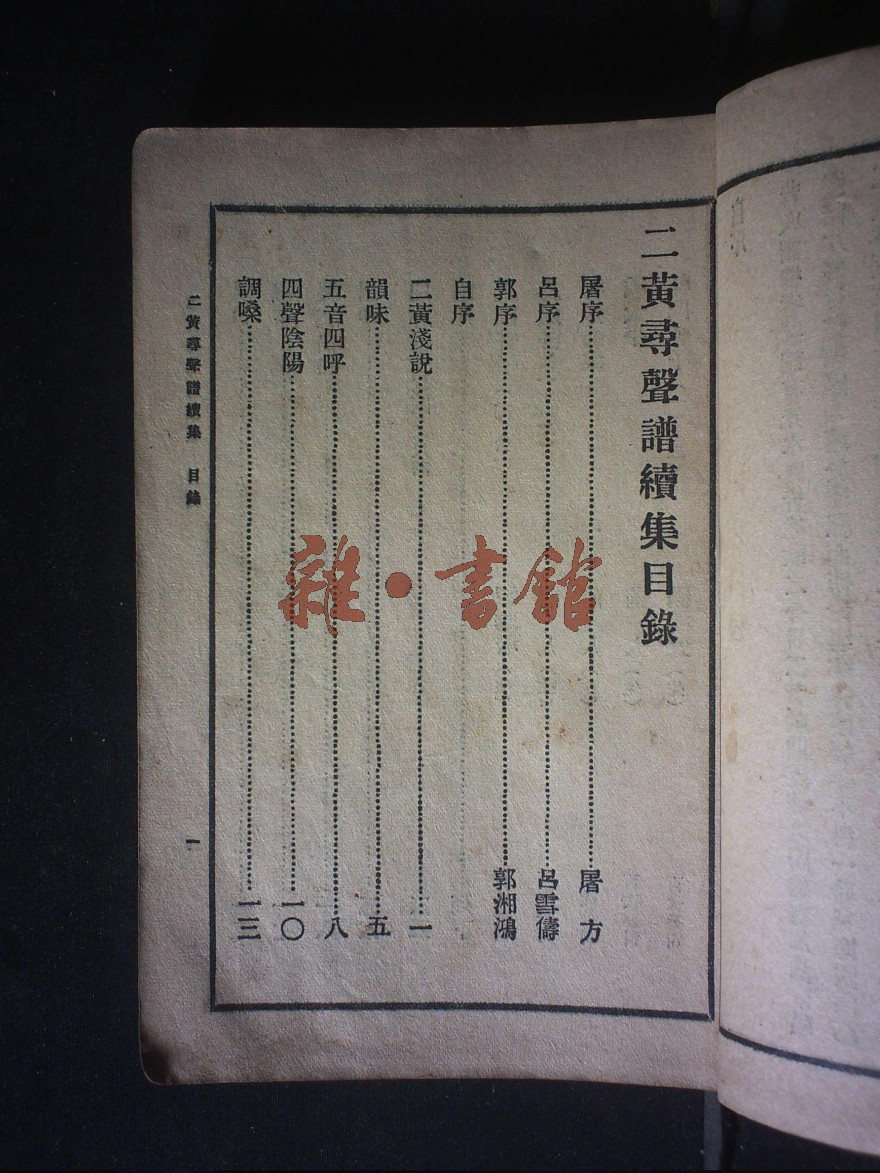 二黃尋聲譜續集目錄
屠序……屠方
呂序……呂雪儔
郭序……郭湘鴻
自序
二黃淺說……一
韻味……五
五音四呼……八
四聲陰陽……一〇
調嗓……一三
二黃尋聲譜續集 目錄 一
雜·書館
自序